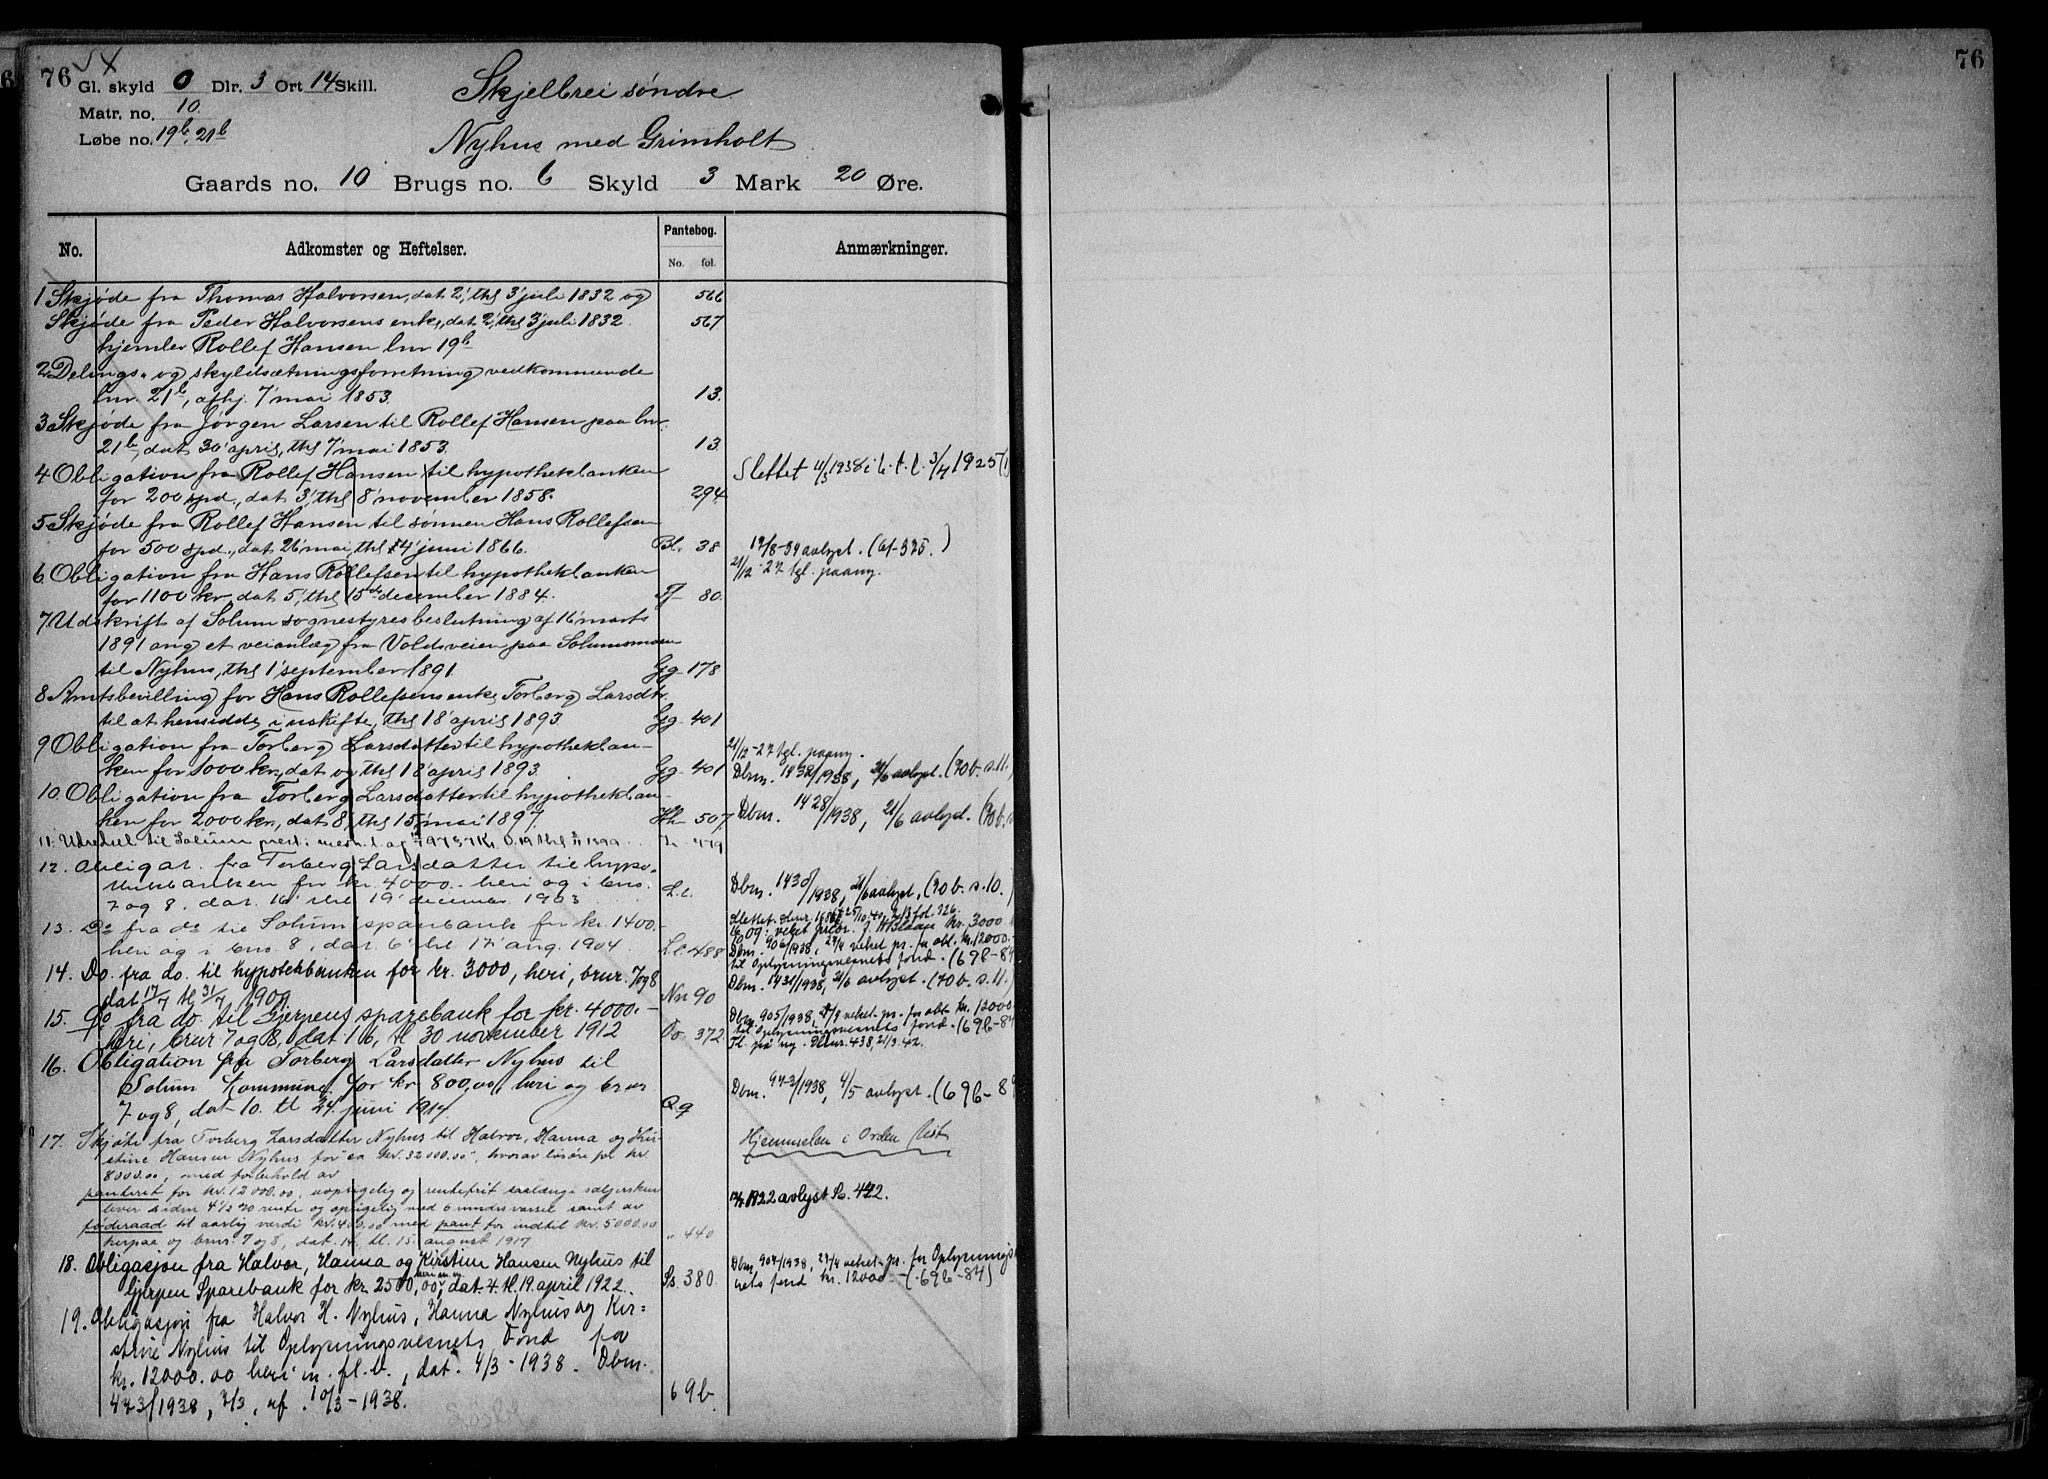 76
Gl. skyld 0 Dlr. 3 Ort 14 Skill.
Matr. no. 10.
Løbe no. 19b, 21b
Skjelbrei søndre
Nyhus med Grimholt
Gaards no. 10 Brugs no. 6 Skyld 3 Mark 20 Øre.
No. Adkomster og Heftelser. Pantebog. No. fol. Anmærkninger.
1 Skjøde fra Thomas Halvorsen, dat 2', thl 3' juli 1832 og 566
Skjøde fra Peder Halvorsens enke, dat 2', thl 3' juli 1832. 567
hjemler Rollef Hansen lnr 19b
2 Delings- og skyldsætningsforretning vedkommende
lnr. 21b, afhj. 7' mai 1853. 13.
3 Skjøde fra Jørgen Larsen til Rollef Hansen paa lnr.
21b, dat 30' april, thl 7' mai 1853. 13
4 Obligation fra Rollef Hansen til hypothekbanken
for 200 spd., dat 3', thl 8' november 1858. 294 Slettet 11/3 1938 i h. t. l. 3/4 1925
5 Skjøde fra Rollef Hansen til sønnen Hans Rollefsen
for 500 spd., dat 26' mai, thl 4' juni 1866. Bb. 38
6 Obligation fra Hans Rollefsen til hypothekbanken 21/12-27 tgl. paany.
for 1100 kr, dat 5', thl 15de december 1884. 80.
7 Udskrift af Solum sognestyres beslutning af 16' marts
1891 ang et veianlæg fra Voldsveien paa Solumsmoen
til Nyhus, thl 1' september 1891. Gg 178
8 Amtsbevilling for Hans Rollefsens enke Torberg Larsdtr.
til at hensidde i uskifte, thl 18' april 1893. Gg 401
9 Obligation fra Torberg Larsdatter til hypothekban- 21/12-27 tgl. paany.
ken for 1000 kr., dat og thl 18' april 1893. Gg. 401 Dbnr. 1432/1938, 21/6 avlyst. (70b. s. 11.)
10. Obligation fra Torberg Larsdatter til hypothekban-
ken for 2000 kr., dat 8', thl 15' mai 1897. Hh 507 Dbnr. 1428/1938, 21/6 avlyst. (70b.
11. 479
12. Obligat. fra Torberg Larsdatter til hypo-
thekbanken for kr. 4000.- heri og i bno. L.l. Dbnr. 1430/1938, 21/6 avlyst. (70b. s. 10.)
7 og 8, dat. 16' thl 19' december 1903
13. Do fra do til Solum sparebank for kr. 1400.-
heri og i bno. 8, dat. 6' thl 17' aug. 1904. L.l. 488 Dbnr. 906/1938, 29/4 veket pr. for obl. kr. 12000.-
til Oplysningsvesnets fond. (69b-84
14. Do. fra do. til hypotekbanken for kr. 3000, heri, bnr. 7 og 8 Dbnr. 1431/1938, 21/6 avlyst. (70b. s. 11.)
dat 17/7 tl 31/7 Nn 90
15. Do fra do. til Gjerpens sparebank for kr. 4000.- Dbnr. 905/1938, 29/4 veket pr. for obl. kr. 12000
heri, bnr 7 og 8, dat 16, tl 30 november 1912 Oo. 372 til Oplysningsvesnets fond. (69b-84
Tl. på ny. Dbnr. 438, 21/3. 42.
16. Obligation fra Torberg Larsdatter Nyhus til
Solum Kommune, for kr 800,00, heri og bnr Dbnr. 943/1938, 4/5 avlyst. (69b-8
7 og 8, dat 10. tl 24. juni 1914. Q.q
17. Skjøte fra Torberg Larsdatter Nyhus til Halvor, Hanna og Kir- Hjemmelen i Orden
stine Hansen Nyhus for ca kr. 32000.00, hvorav løsøre for kr.
8000.00, med forbehold av
panteret for kr. 12000.00, uopsigelig og rentefrit saalænge sælgersken 1922 avlyst Ss. 422.
lever siden 4 1/2 % rente og opsigelig med 6 mndrs varsel samt av
føderaad til aarlig værdi kr. 400.00 med pant for indtil kr. 5000.00
herpaa og bnr. 7 og 8, dat. 14. tl. 15. august 1917 " 440
18. Obligasjon fra Halvor, Hanna og Kirstine Hansen Nyhus til Dbnr. 904/1938, 29/4 veket pr. for Oplysningsves-
Gjerpen Sparebank for kr. 2500,00, dat. 4. tl. 19. april 1922. Ss. 380. nets fond kr. 12000.- (69b-84)
19. Obligasjon fra Halvor H. Nyhus, Hanna Nyhus og Kir=
stine Nyhus til Oplysningsvesnets Fond for
kr. 12000.00 heri m. fl. b., dat. 4/3-1938. Dbnr.
473/1938, 7/3, af. 10/3-1938. 69b.
76